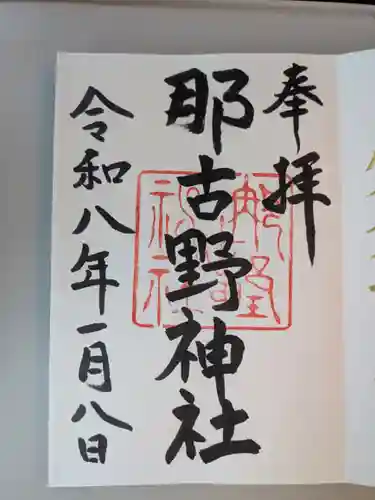 奉拝
那古野神社
令和八年一月八日